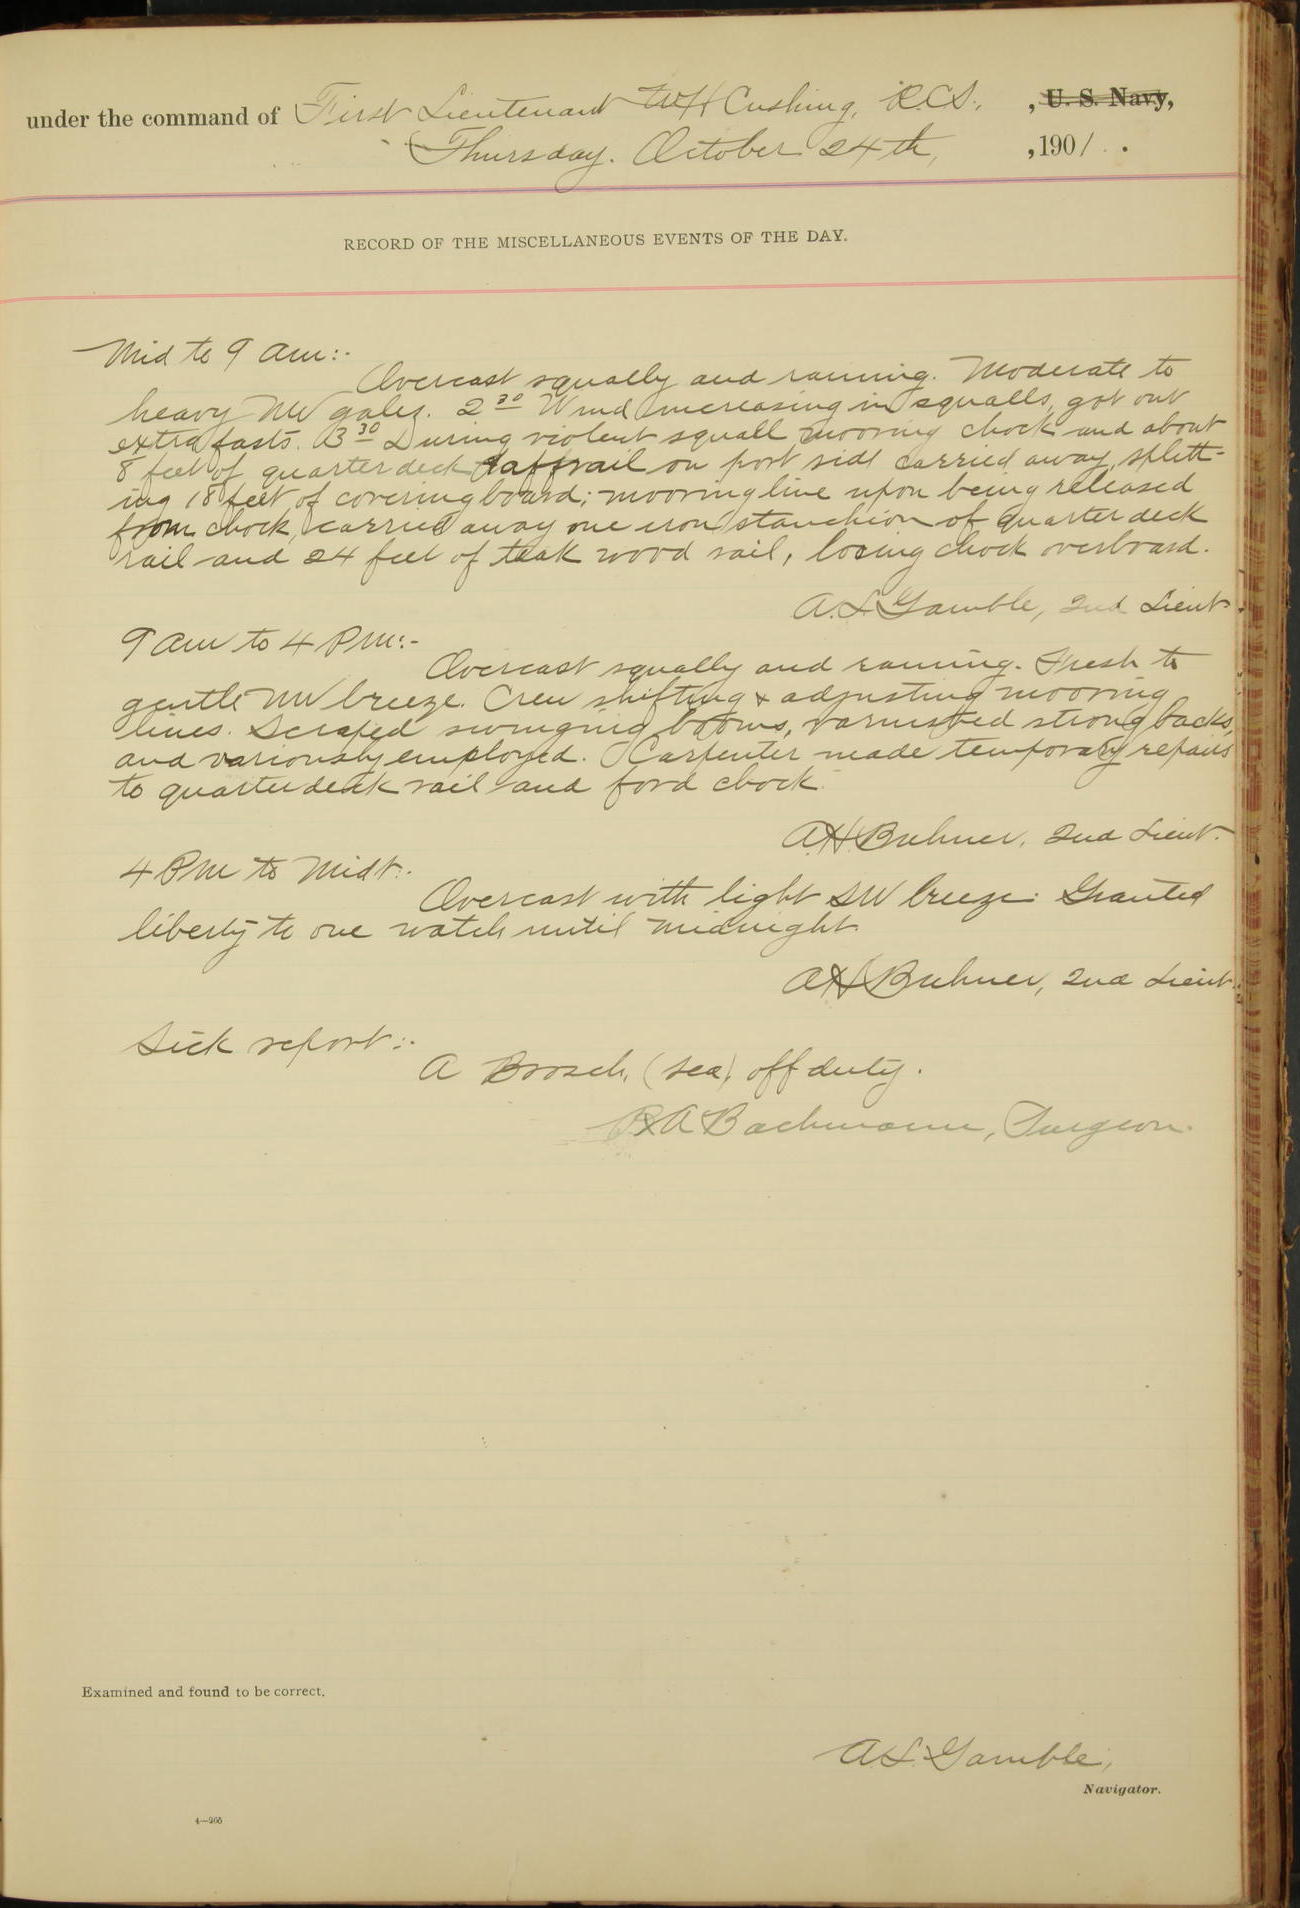 under the command of First Lieutenant W H Cushing, R.C.S., , U. S. Navy,
Thursday. October 24th, , 1901 .
RECORD OF THE MISCELLANEOUS EVENTS OF THE DAY.
Mid to 9 am:-
Overcast squally and raining. Moderate to
heavy NW gales. 2 30 Wind increasing in squalls, got out
extra fasts. 3 30 During violent squall mooring chock and about
8 feet of quarter deck taffrail on port side carried away, splitt-
ing 18 feet of covering board; mooring line upon being released
from chock, carried away one iron stanchion of quarter deck
rail and 24 feet of teak wood rail, losing chock overboard.
A. L Gamble, 2nd Lieut.
9 am to 4 Pm:-
Overcast squally and raining. Fresh to
gentle NW breeze. Crew shifting & adjusting mooring
lines. Scraped swinging booms, varnished strong backs,
and variously employed. Carpenter made temporary repairs
to quarter deck rail and ford chock.
A H Buhner, 2nd Lieut.
4 Pm to Midt:-
Overcast with light SW breeze. Granted
liberty to one watch until midnight.
A H Buhner, 2nd Lieut.
Sick report:-
A Brosch, (sea), off duty.
R A Bachmann, Surgeon.
Examined and found to be correct.
A. L. Gamble,
Navigator.
4—205